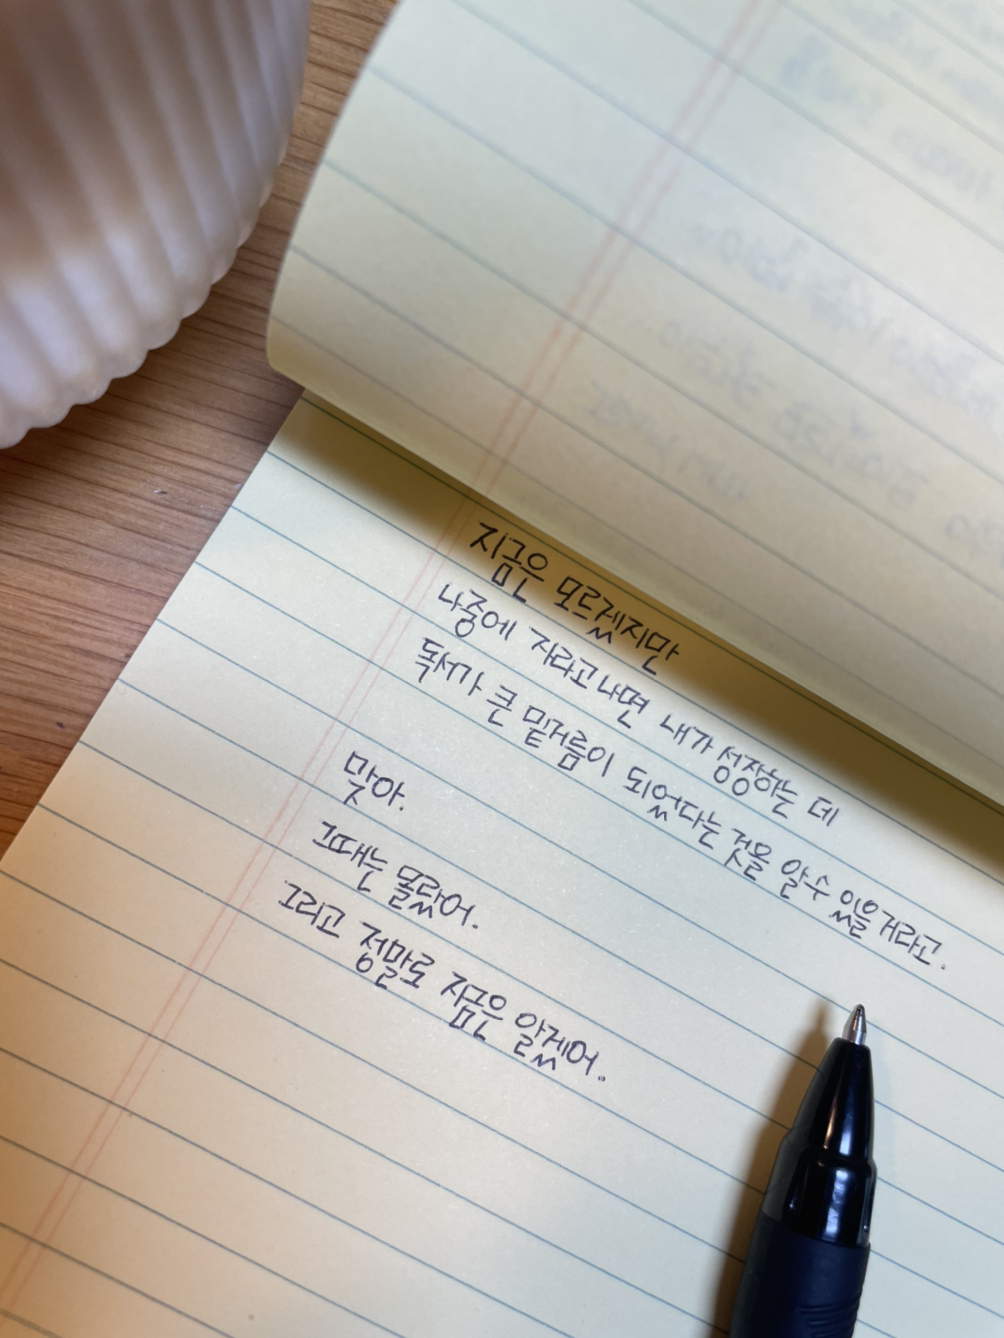 지금은 모르겠지만
나중에 자라고나면 내가 성장하는 데
독서가 큰 밑거름이 되었다는 것을 알수 있을거라고.
맞아.
그때는 몰랐어.
그리고 정말로 지금은 알겠어.